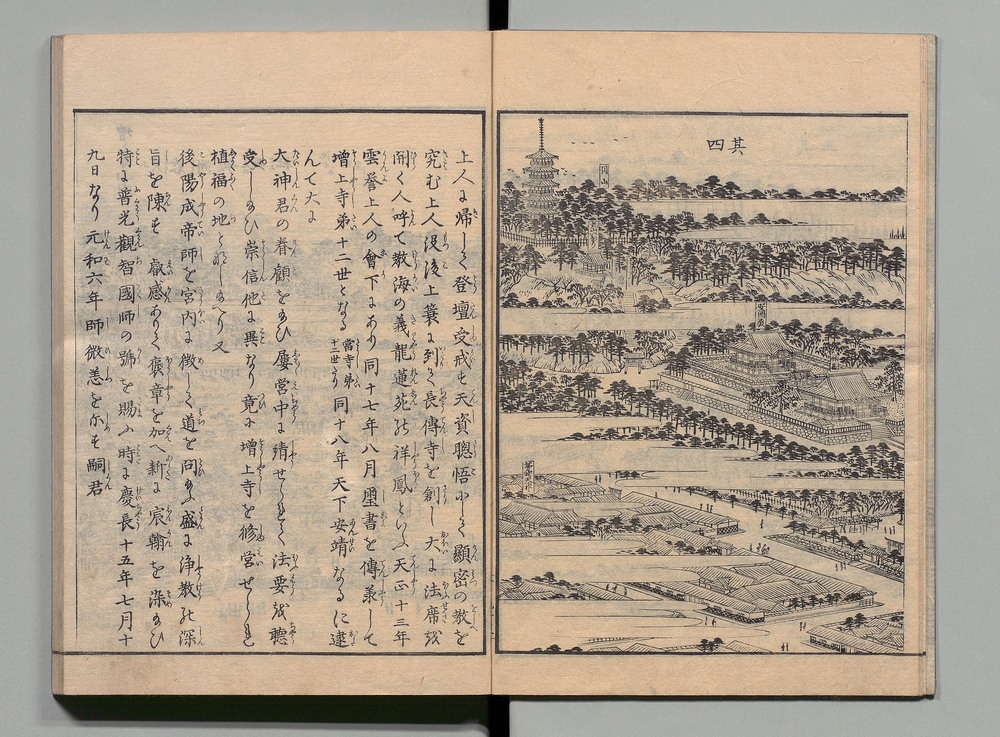 其四
円山
安国殿
上人に帰して登壇受戒す天資聰悟にして顯密の教を
究む上人没後上簑に到て長傳寺を創し大に法席を
開く人呼て教海の義龍蓮苑の祥鳳といふ天正十三年
雲誉上人の會下にあり同十七年八月璽書を傳承して
増上寺第十二世となる當寺第十二世なり同十八年天下安靖なるに逮
んて大に
大神君の眷顧をかひ屢営中に請せられて法要を聽
受しかひ崇信他に異なり竟に増上寺を修営せられ
植福の地となしかへり又
後陽成帝師を宮内に徴して道を問かふ盛に浄教の深
旨を陳す叡感ありて褒章を加へ新に宸翰を染かひ
特に普光觀智國師の號を賜ふ時に慶長十五年七月十
九日なり元和六年師微恙を示す嗣君